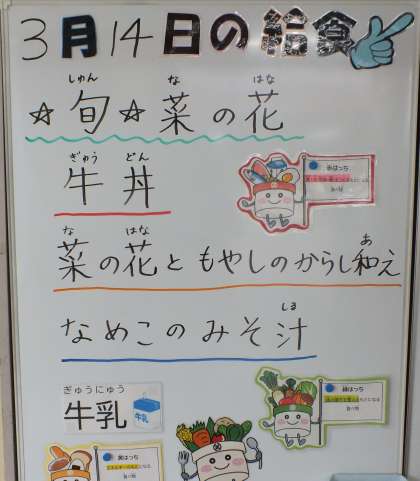 3月14日の給食
しゅん な はな
☆旬☆菜の花
ぎゅう どん
牛丼
な はな あ
菜の花ともやしのからし和え
しる
なめこのみそ汁
ぎゅうにゅう
牛乳
牛乳
赤はっち
緑はっち
黄はっち